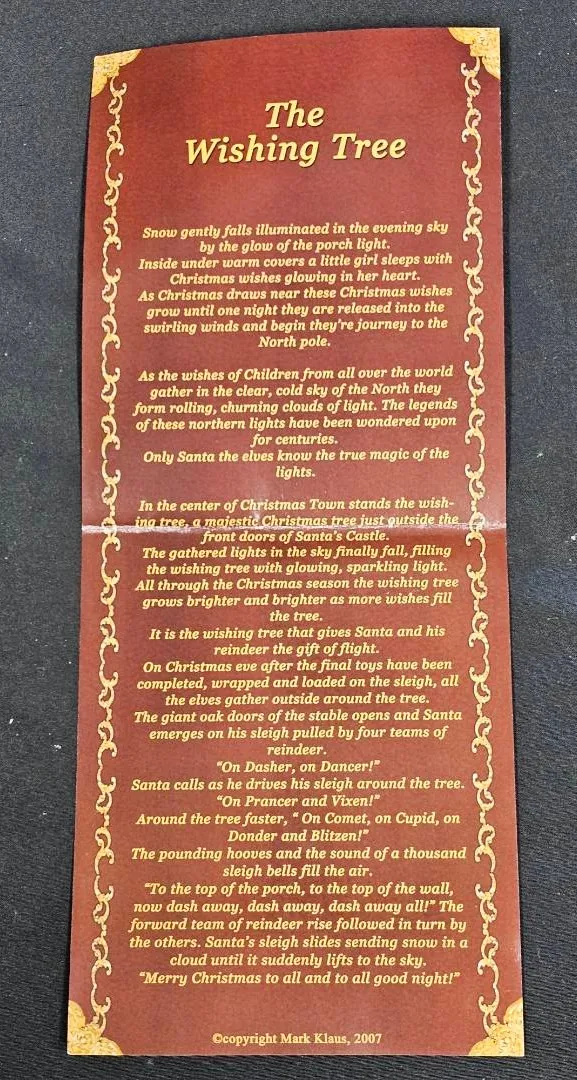 The
Wishing Tree
Snow gently falls illuminated in the evening sky
by the glow of the porch light.
Inside under warm covers a little girl sleeps with
Christmas wishes glowing in her heart.
As Christmas draws near these Christmas wishes
grow until one night they are released into the
swirling winds and begin they're journey to the
North pole.
As the wishes of Children from all over the world
gather in the clear, cold sky of the North they
form rolling, churning clouds of light. The legends
of these northern lights have been wondered upon
for centuries.
Only Santa the elves know the true magic of the
lights.
In the center of Christmas Town stands the wish-
ing tree, a majestic Christmas tree just outside the
front doors of Santa's Castle.
The gathered lights in the sky finally fall, filling
the wishing tree with glowing, sparkling light.
All through the Christmas season the wishing tree
grows brighter and brighter as more wishes fill
the tree.
It is the wishing tree that gives Santa and his
reindeer the gift of flight.
On Christmas eve after the final toys have been
completed, wrapped and loaded on the sleigh, all
the elves gather outside around the tree.
The giant oak doors of the stable opens and Santa
emerges on his sleigh pulled by four teams of
reindeer.
"On Dasher, on Dancer!"
Santa calls as he drives his sleigh around the tree.
"On Prancer and Vixen!"
Around the tree faster, " On Comet, on Cupid, on
Donder and Blitzen!"
The pounding hooves and the sound of a thousand
sleigh bells fill the air.
"To the top of the porch, to the top of the wall,
now dash away, dash away, dash away all!" The
forward team of reindeer rise followed in turn by
the others. Santa's sleigh slides sending snow in a
cloud until it suddenly lifts to the sky.
"Merry Christmas to all and to all good night!"
©copyright Mark Klaus, 2007